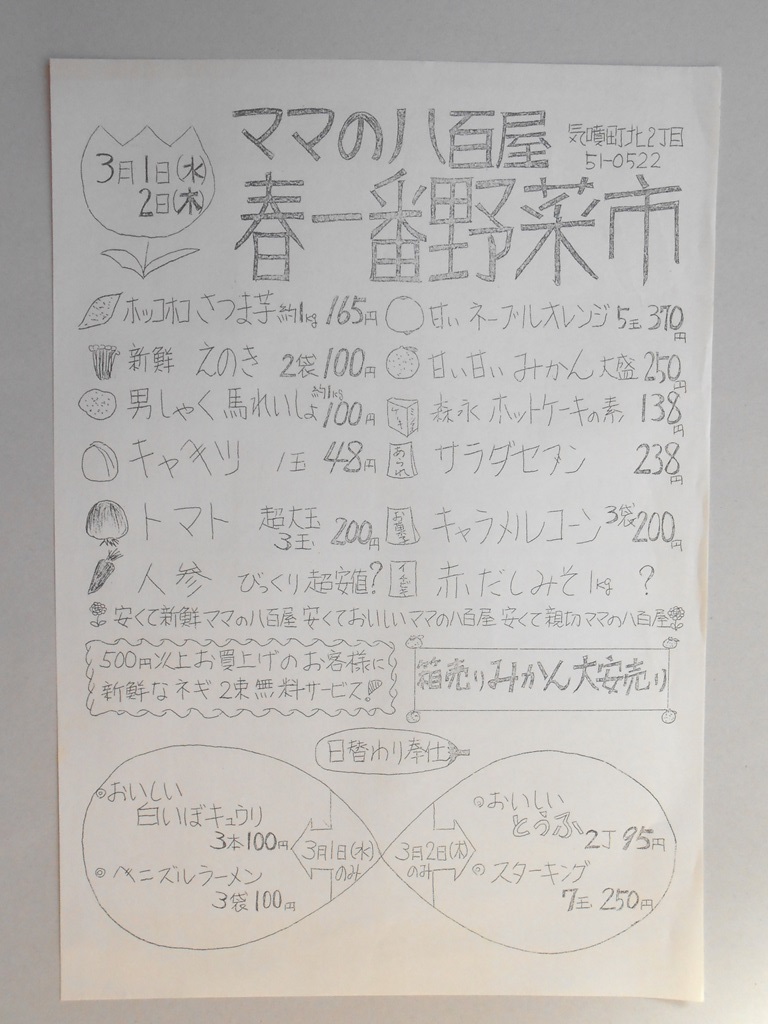 3月1日(水)
2日(木)
ママの八百屋
気噴町北2丁目
51-0522
春一番野菜市
ホッコホコ さつま芋 約1kg 165円
甘い ネーブルオレンジ 5玉 370円
新鮮 えのき 2袋 100円
甘い甘い みかん 大盛 250円
男しゃく馬れいしょ 約1kg 100円
森永 ホットケーキの素 138円
キャベツ 1玉 48円
サラダセブン 238円
トマト 超大玉 3玉 200円
お菓子
キャラメルコーン 3袋 200円
人参 びっくり超安値?
赤だしみそ 1kg ?
安くて新鮮ママの八百屋 安くておいしいママの八百屋 安くて親切ママの八百屋
500円以上お買上げのお客様に
新鮮なネギ2束無料サービス!
箱売りみかん大安売り
日替わり奉仕
おいしい
白いぼキュウリ
3本100円
ベニズルラーメン
3袋100円
3月1日(水)
のみ
3月2日(木)
のみ
おいしい
とうふ
2丁 95円
スターキング
7玉 250円